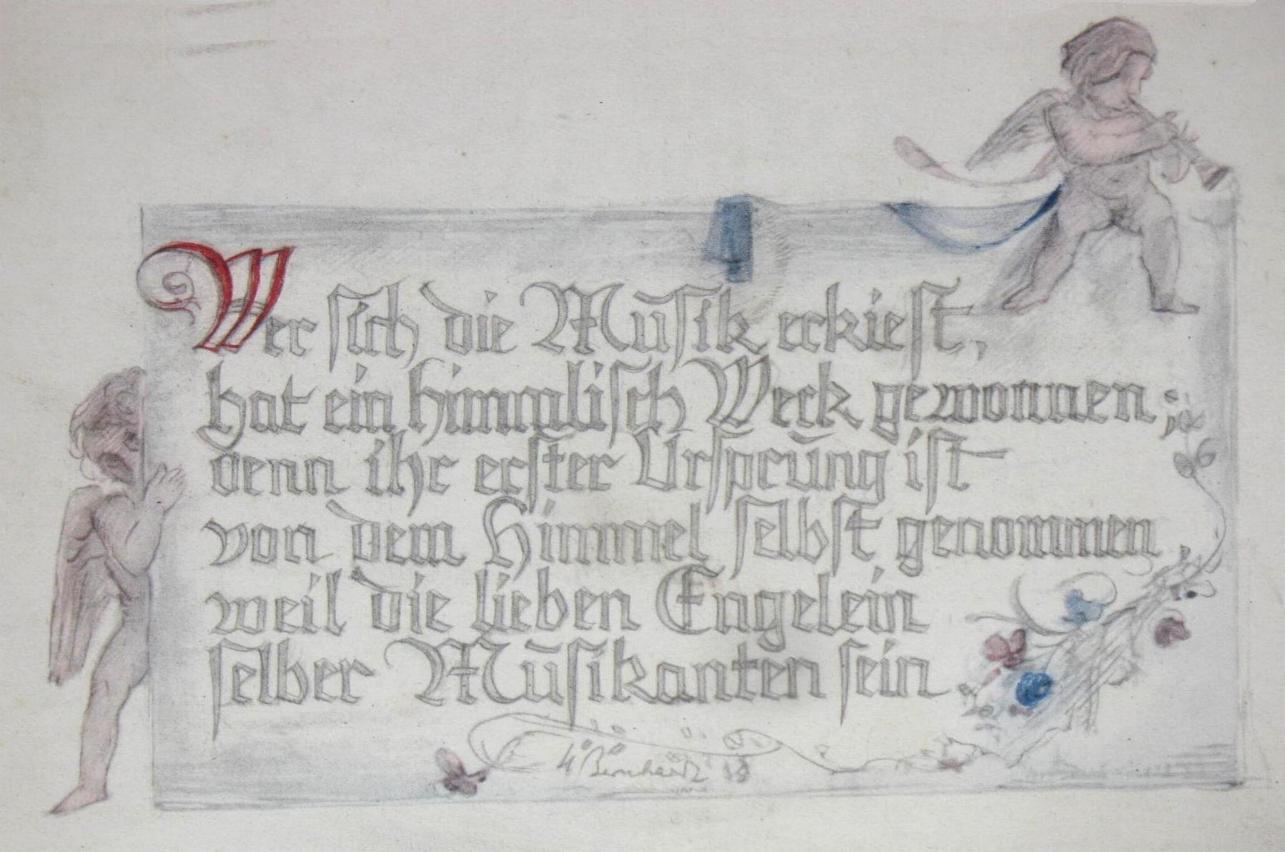 Wer sich die Musik erkiest,
hat ein himmlisch Werk gewonnen;
denn ihr erster Ursprung ist
von dem Himmel selbst genommen,
weil die lieben Engelein
selber Musikanten sein.